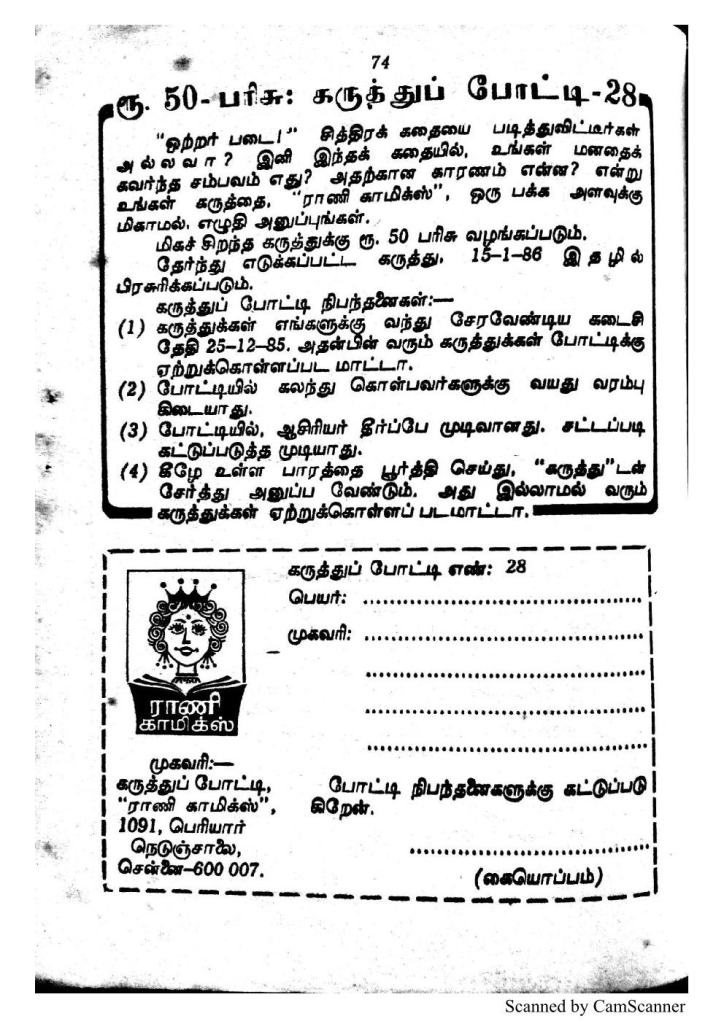 74
ரூ. 50-பரிசு: கருத்துப் போட்டி-28
"ஒற்றர் படை!" சித்திரக் கதையை படித்துவிட்டீர்கள்
அல்லவா? இனி இந்தக் கதையில், உங்கள் மனதைக்
கவர்ந்த சம்பவம் எது? அதற்கான காரணம் என்ன? என்று
உங்கள் கருத்தை, "ராணி காமிக்ஸ்", ஒரு பக்க அளவுக்கு
மிகாமல், எழுதி அனுப்புங்கள்.
மிகச் சிறந்த கருத்துக்கு ரூ. 50 பரிசு வழங்கப்படும்.
தேர்ந்து எடுக்கப்பட்ட கருத்து, 15-1-86 இதழில்
பிரசுரிக்கப்படும்.
கருத்துப் போட்டி நிபந்தனைகள்:—
(1) கருத்துக்கள் எங்களுக்கு வந்து சேரவேண்டிய கடைசி
தேதி 25-12-85. அதன்பின் வரும் கருத்துக்கள் போட்டிக்கு
ஏற்றுக்கொள்ளப்பட மாட்டா.
(2) போட்டியில் கலந்து கொள்பவர்களுக்கு வயது வரம்பு
கிடையாது.
(3) போட்டியில், ஆசிரியர் தீர்ப்பே முடிவானது. சட்டப்படி
கட்டுப்படுத்த முடியாது.
(4) கீழே உள்ள பாரத்தை பூர்த்தி செய்து, "கருத்து"டன்
சேர்த்து அனுப்ப வேண்டும். அது இல்லாமல் வரும்
கருத்துக்கள் ஏற்றுக்கொள்ளப் படமாட்டா.
கருத்துப் போட்டி எண்: 28
பெயர்: ........................................
முகவரி: ........................................
........................................
........................................
........................................
ராணி
காமிக்ஸ்
முகவரி:—
கருத்துப் போட்டி,
"ராணி காமிக்ஸ்",
1091, பெரியார்
நெடுஞ்சாலை,
சென்னை-600 007.
போட்டி நிபந்தனைகளுக்கு கட்டுப்படு
கிறேன்.
........................................
(கையொப்பம்)
Scanned by CamScanner